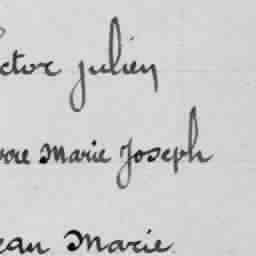 ctor julien
Marie Joseph
ean Marie